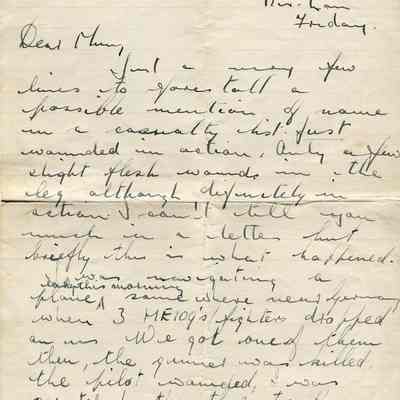 Friday.
Dear Mum,
Just a very few
lines to forestall a
possible mention of name
in a casualty list. Just
wounded in action. Only a few
slight flesh wounds in the
leg although definitely in
action I can't tell you
much in a letter but
briefly this is what happened.
I was navigating a
early this morning
plane somewhere near Germany
when 3 ME109's fighters dropped
on us. We got one of them
then, the gunner was killed,
the pilot wounded, I was